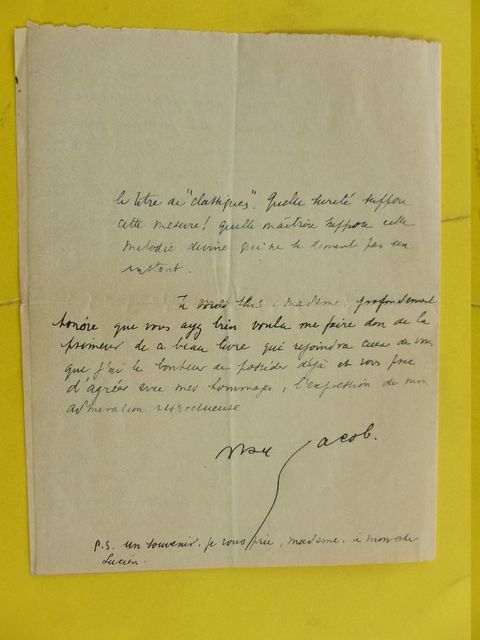 le titre de "classiques". Quelle sureté suppose
cette mesure! quelle maîtrise suppose cette
melodie divine qui ne se dément pas un
instant.
Je madame, profondement
honoré que vous ayez bien voulu me faire don de la
primeur de ce beau livre qui rejoindra ceux de vous
que j'ai le bonheur de posséder déjà et vous prie
d'agréer avec mes hommages, l'expression de mon
admiration respectueuse
Max Jacob.
P.S. un souvenir, je vous prie, madame, à mon cher
Lucien.